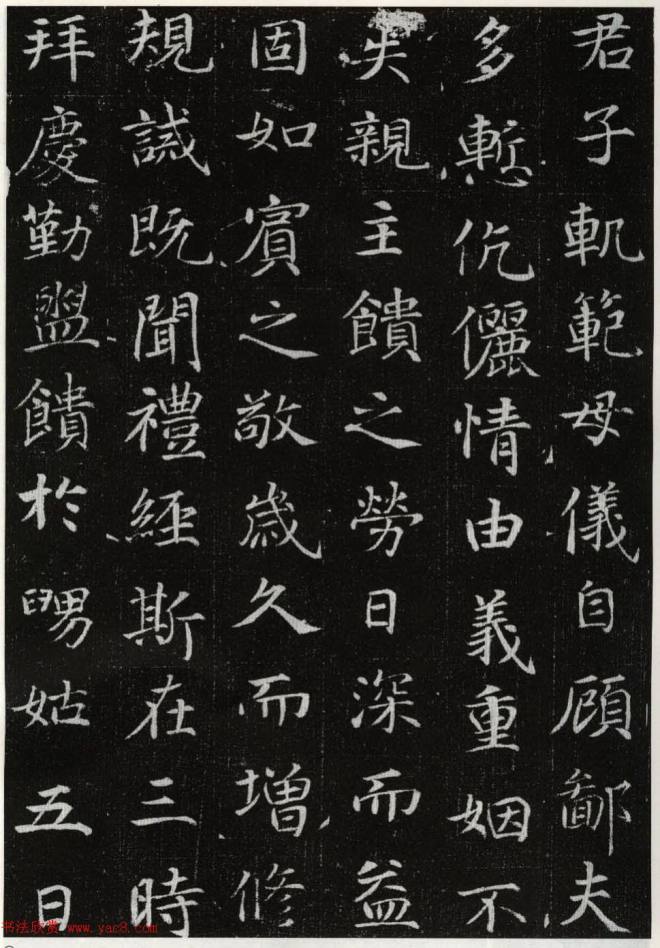 君子軓範母儀自顧鄙夫
多慙伉儷情由義重姻不
失親主饋之勞日深而益
固如賓之敬歲久而增修
規誡既聞禮經斯在三時
拜慶勤盥饋於舅姑五日
书法欣赏 www.yac8.com